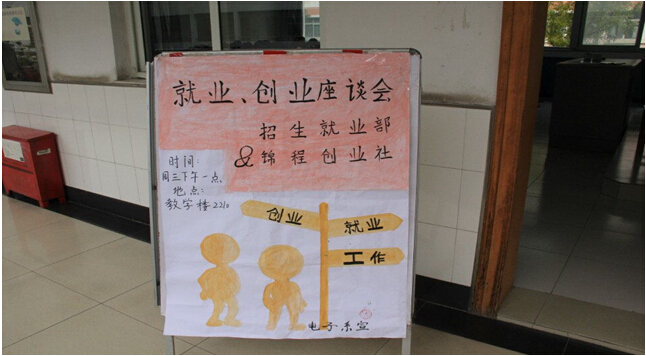 就业、创业座谈会
招生就业部
&锦程创业社
时间:
周三下午一点
地点:
教学楼2210
创业
就业
工作
电子系宣